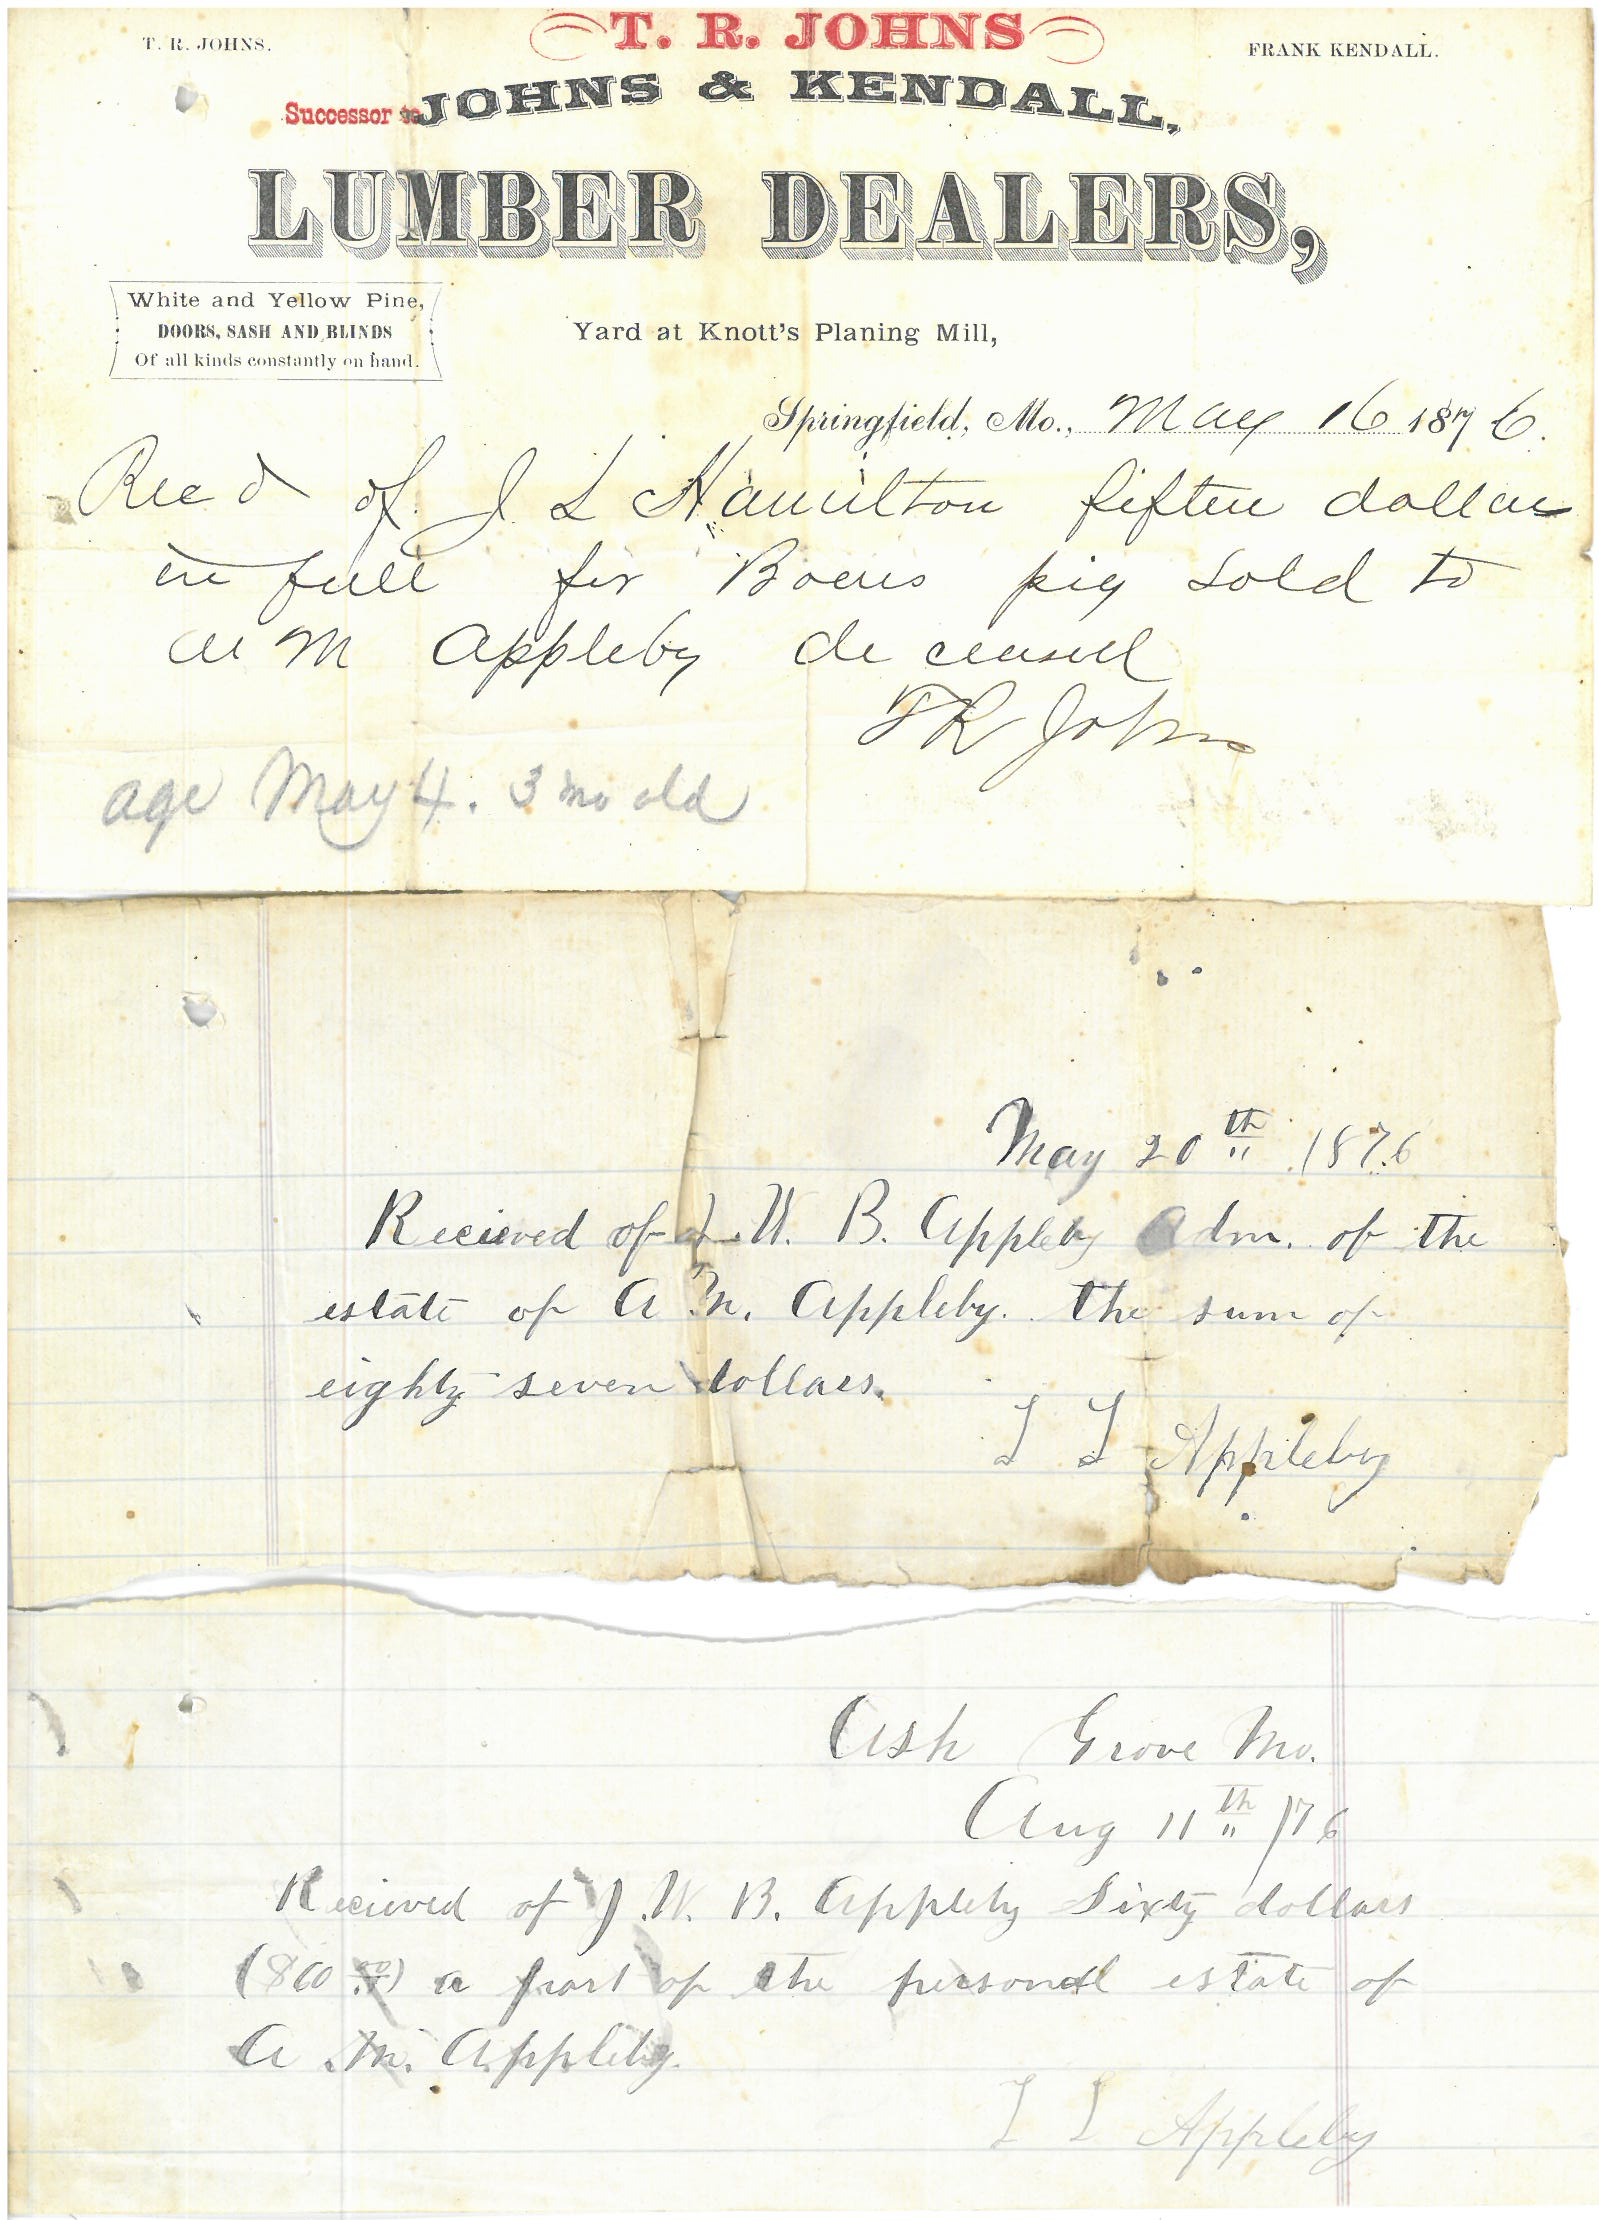 T. R. JOHNS
T. R. JOHNS.
FRANK KENDALL.
Successor to JOHNS & KENDALL,
LUMBER DEALERS,
White and Yellow Pine,
DOORS, SASH AND BLINDS
Of all kinds constantly on hand.
Yard at Knott's Planing Mill,
Springfield, Mo., May 16 1876.
Recd of J L Hamilton fifteen dollars
in full for pig sold to
M Appleby
T R Johns
age May 4. 3 mo old
May 20th 1876
Recieved of J. W. B. Appleby Adm. of the
estate of A M. Appleby. the sum of
eighty seven dollars.
L L Appleby
Ash Grove Mo.
Aug 11th /76
Recieved of J. W. B. Appleby Sixty dollars
($60 00) a part of the personal estate of
A. M. Appleby.
L L Appleby